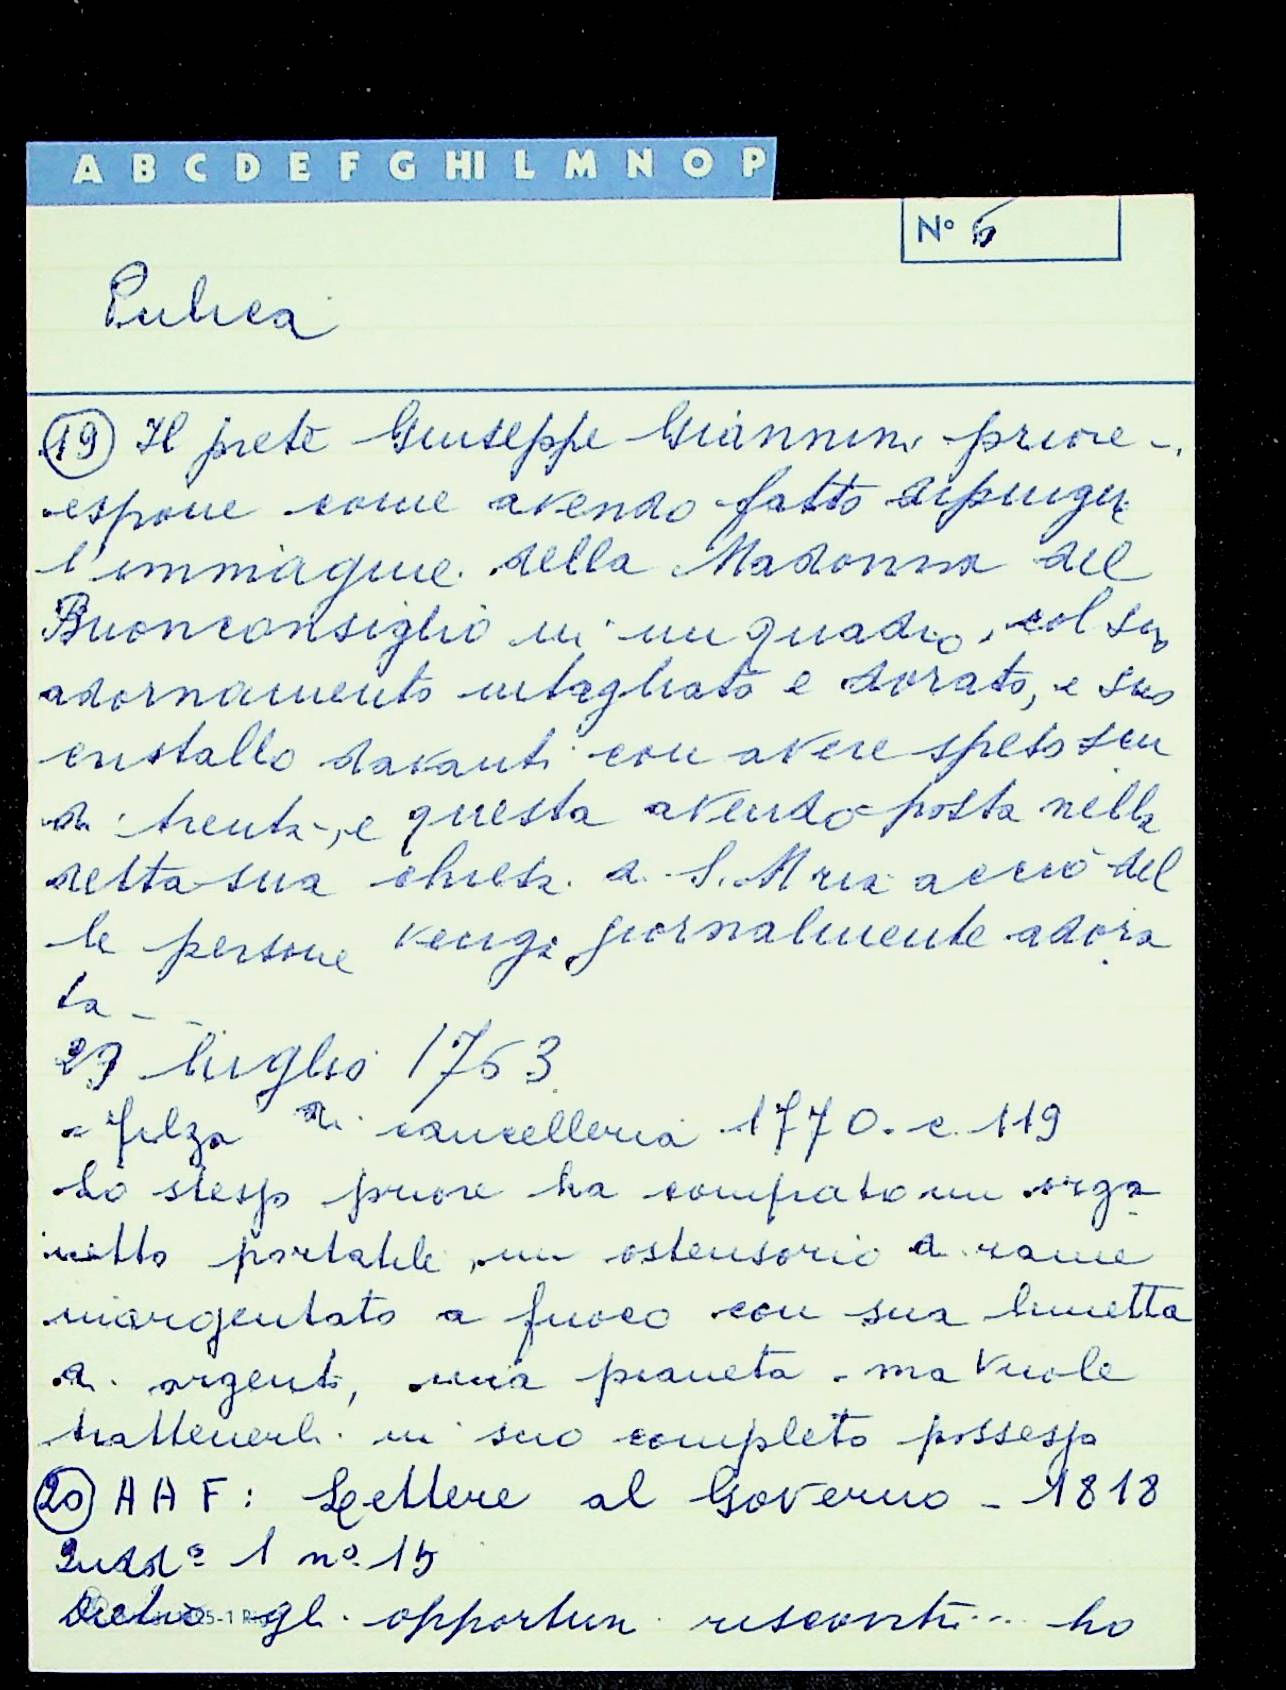 A B C D E F G HI L M N O P
N° 6
Pulica
19 Il prete Giuseppe Giannini priore -
espone come avendo fatto dipinger
l'immagine della Madonna del
Buonconsiglio in un quadro, col suo
adornamento intagliato e dorato, e suo
cristallo davanti con avere speso scu
di trenta, e questa avendo posta nella
detta sua chiesa di S. Mria acciò del
le persone venga giornalmente adora
ta - -
29 luglio 1763
- filza di cancelleria 1770. c. 119
Lo stesso priore ha comprato un orga
netto portatile, un ostensorio di rame
inargentato a fuoco con sua lunetta
di argento, una pianeta - ma vuole
trattenerli in suo completo possesso
20 A A F: Lettere al Governo - 1818
1 n° 15
Dietro gli opportuni riscontri... ho